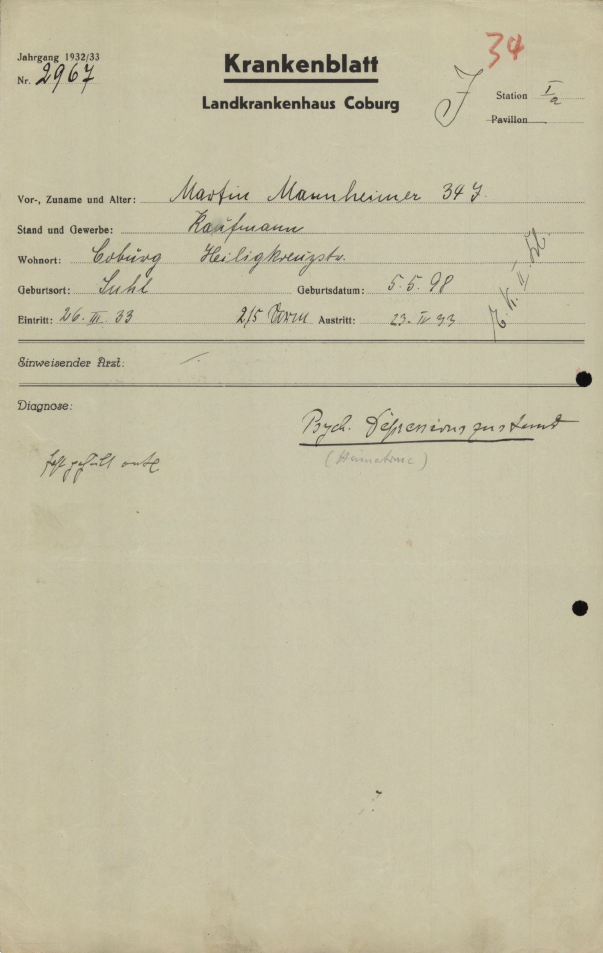 34
Jahrgang 1932/33
Nr. 2967
Krankenblatt
Landkrankenhaus Coburg
J
Station I/a
Pavillon
Vor-, Zuname und Alter: Martin Mannheimer 34 J.
Stand und Gewerbe: Kaufmann
Wohnort: Coburg Heiligkreuzstr.
Geburtsort: Suhl Geburtsdatum: 5.5.98
Eintritt: 26. III. 33 Austritt: 23. IV 33
Einweisender Arzt:
Diagnose:
Psych. Depressionszustand